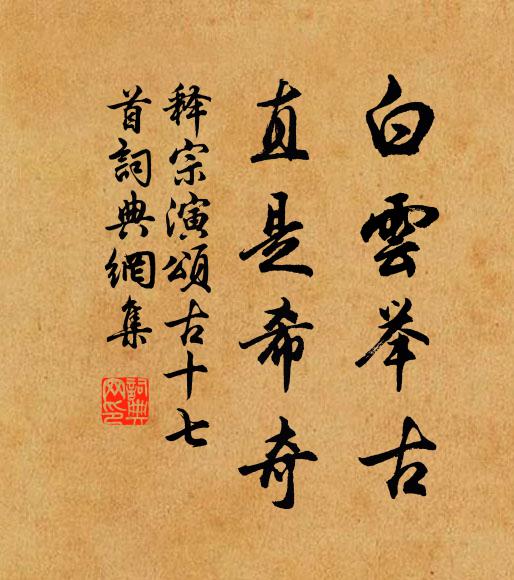 白雲举古
直是希奇
释宗演頌古十七
首詞典網集
詞典网印